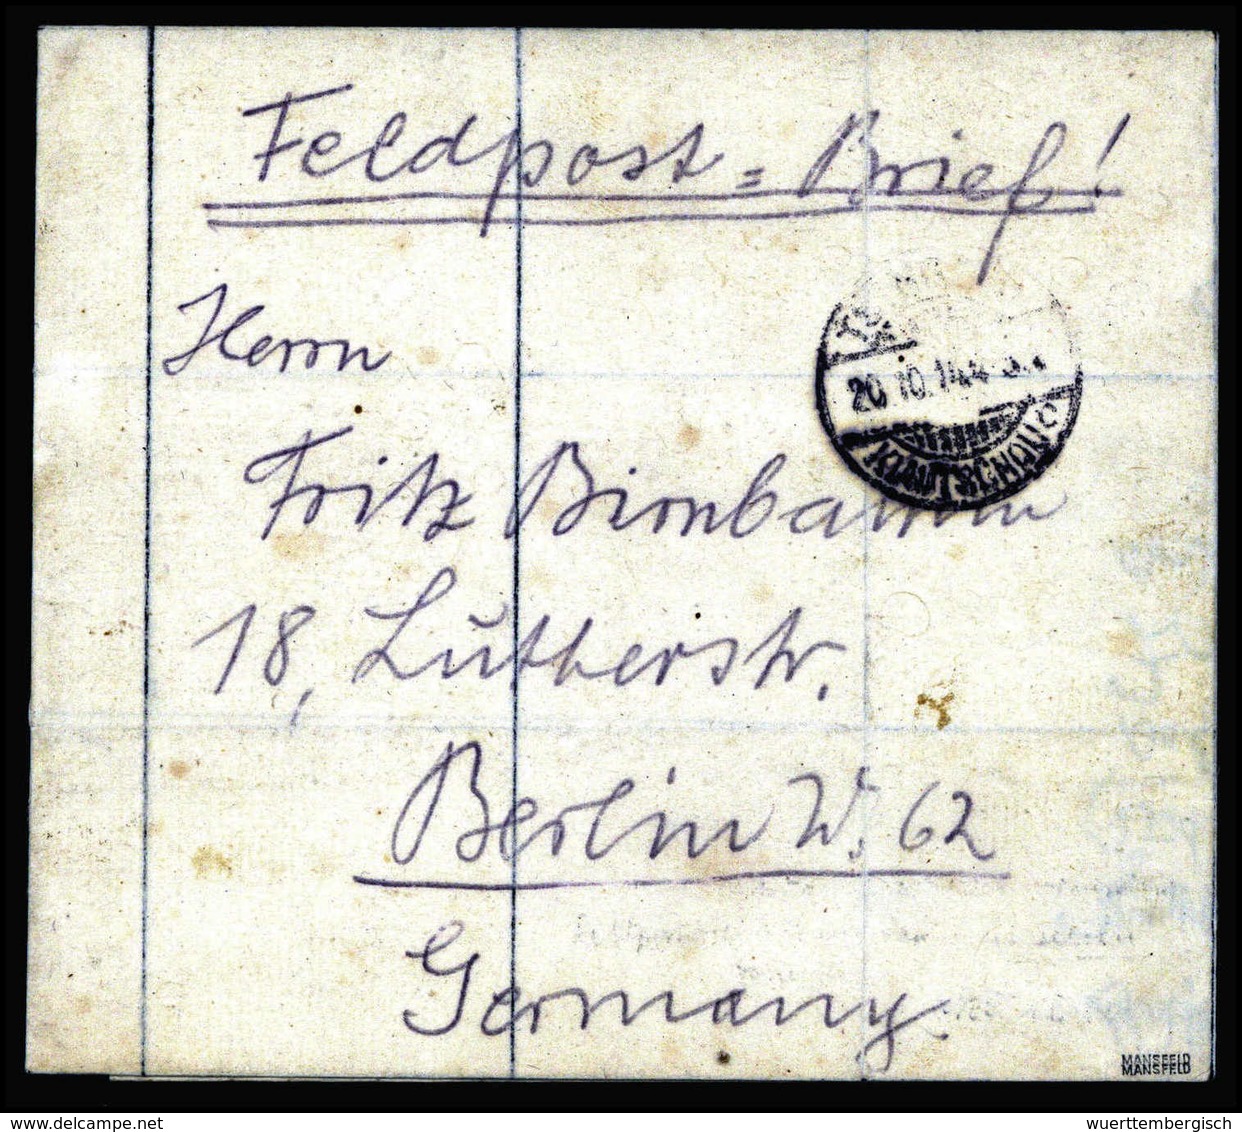 Feldpost = Brief!
Herrn
20.10.14
KIAUTSCHOU
Fritz Birnbaum
18, Lutherstr.
Berlin W. 62
Germany
MANSFELD
MANSFELD
www.delcampe.net
wuerttembergisch